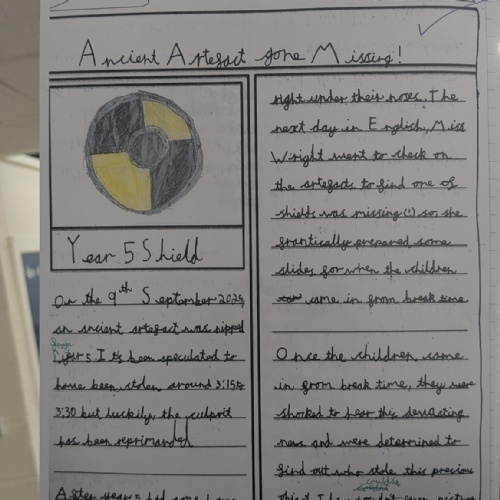 Ancient Artefact gone Missing!
Year 5 Shield
On the 9th September 2025,
an ancient artefact was ripped
years I ts been speculated to
have been stolen around 3:15to
3:30 but luckily, the culprit
has been reprimanded
After year 5 had gone home
right under their noses. The
next day in English, Miss
Wright went to check on
the artefacts to find one of
shields was missing(!) so she
frantically prepared some
slides for when the children
came in from break time
Once the children, came
in from break time, they were
shocked to hear this devasting
news and were determined to
find out who stole this precious
couldn
object I